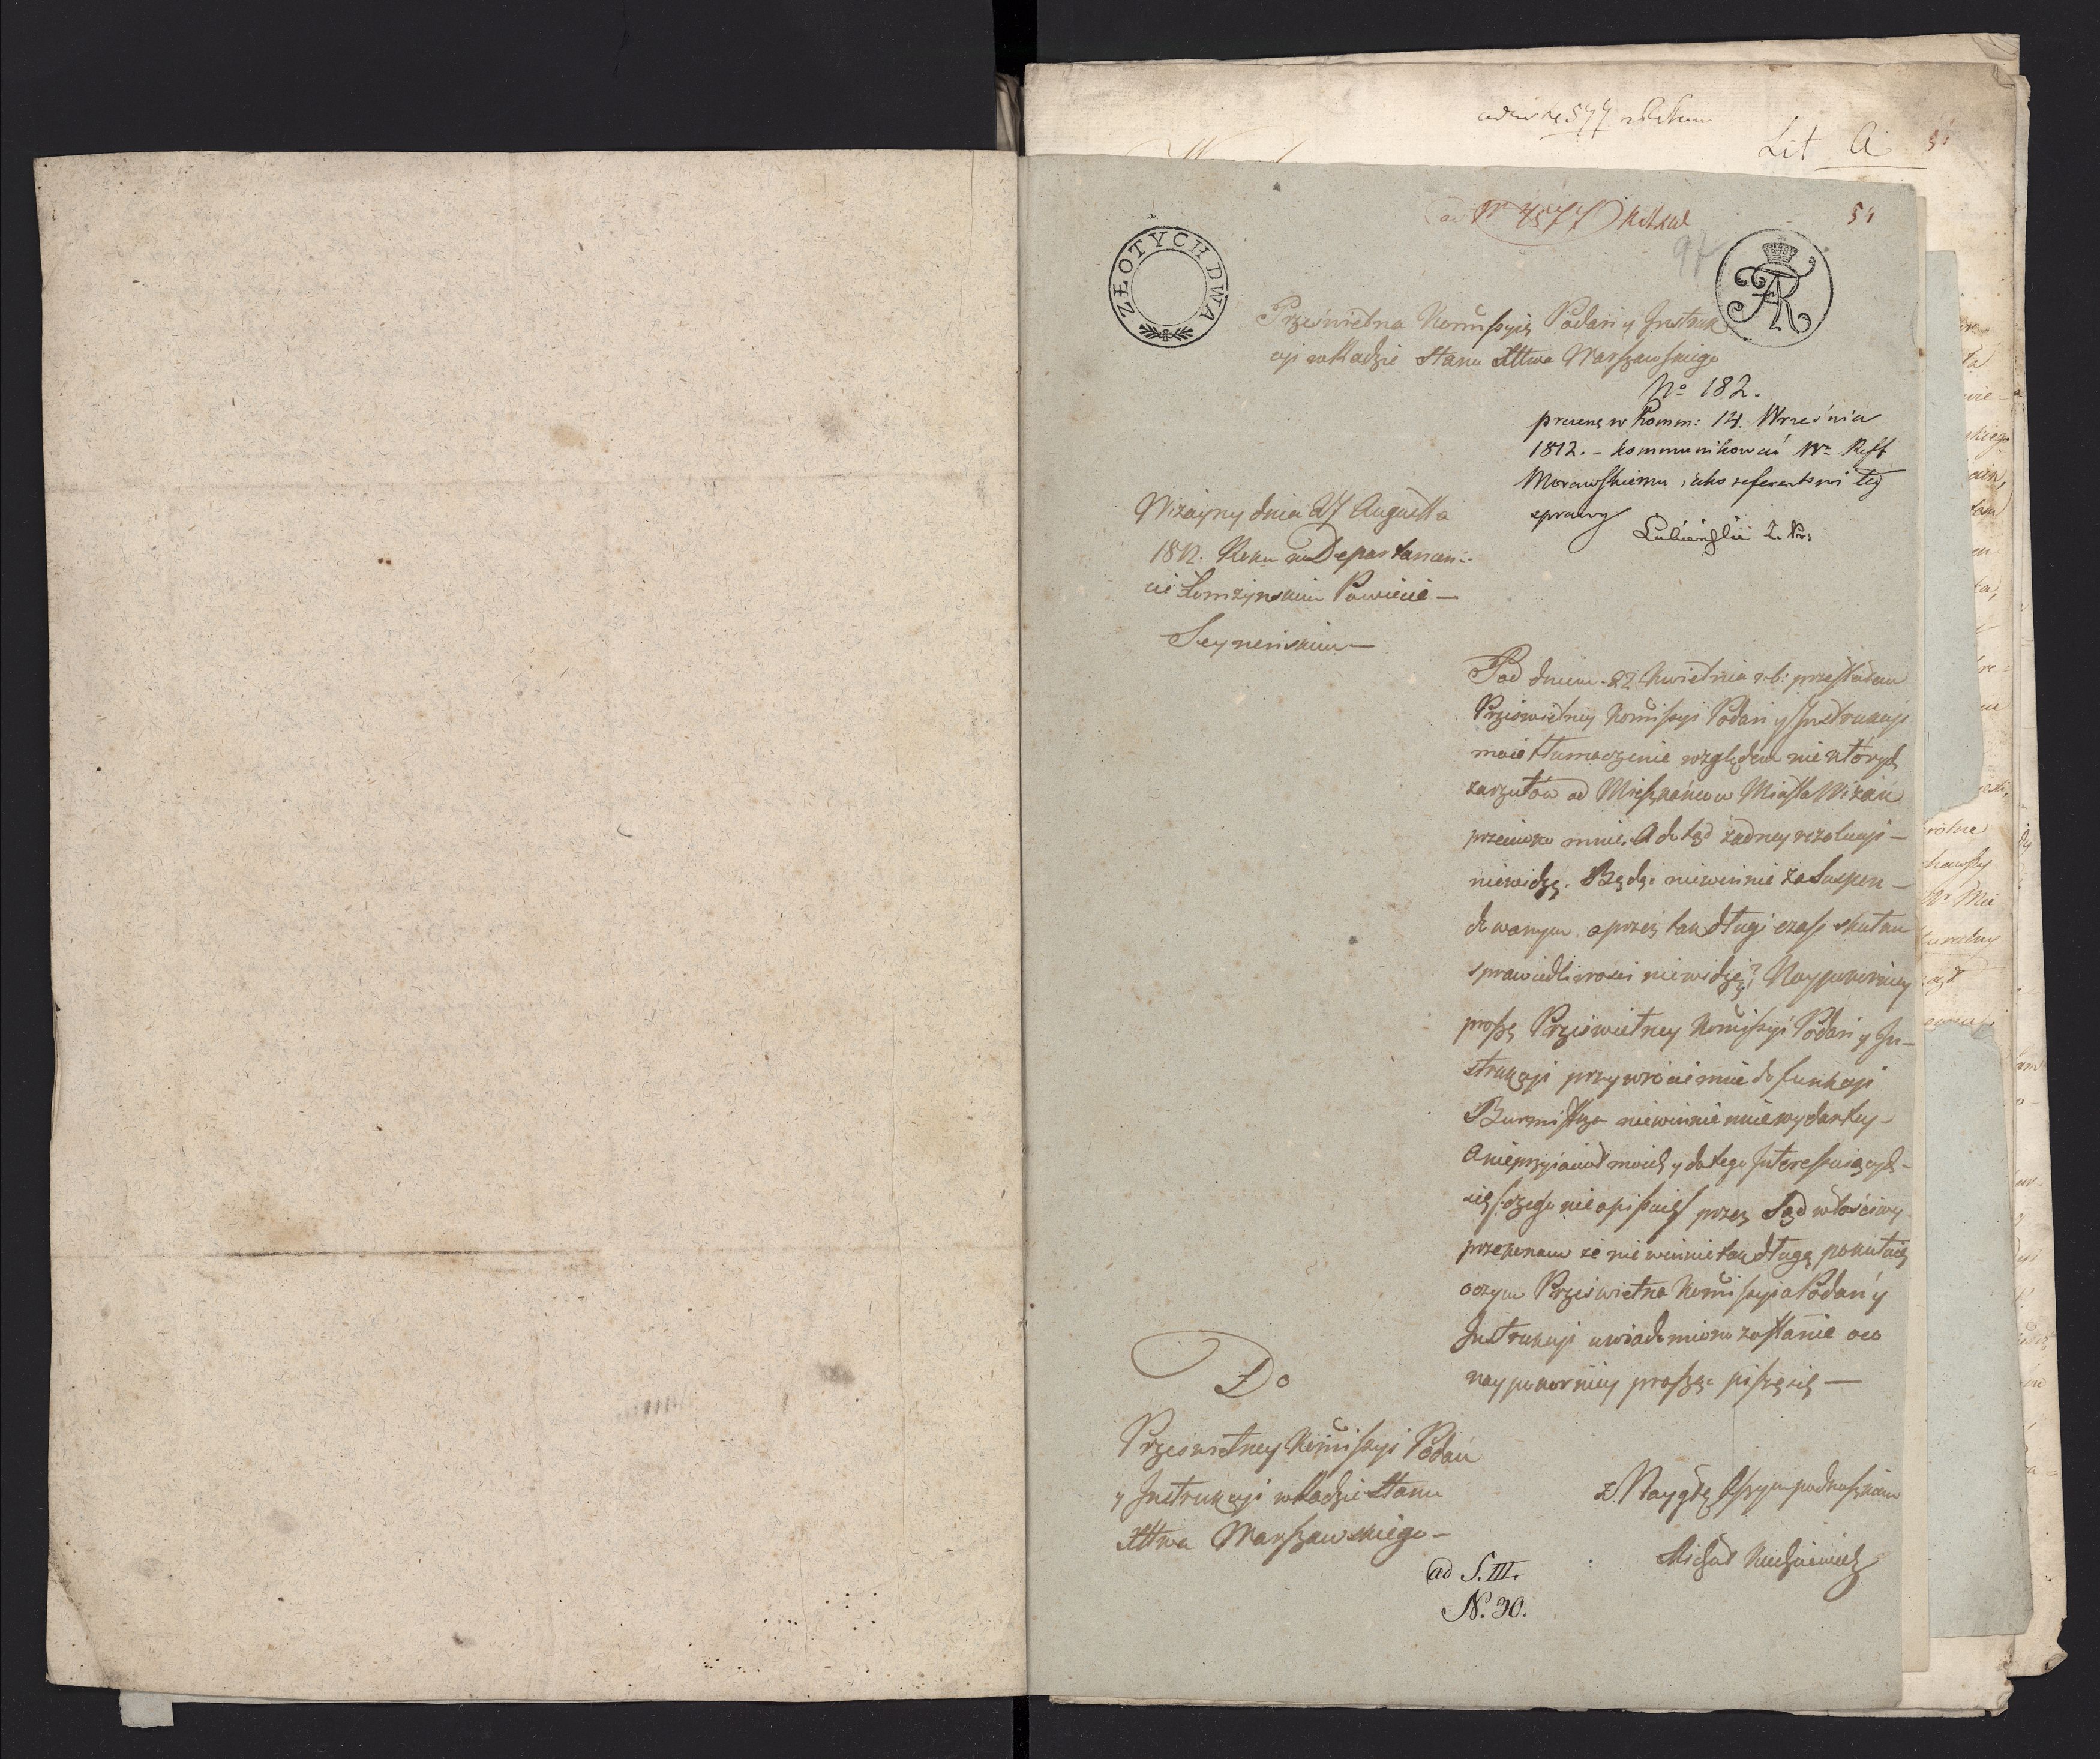 Lit A
ad Nr 4577
51
97
ZŁOTYCH DWA
Prześwietna Kommissyia Podań y Instruk
cyi w Radzie Stanu Xttwa Warszawskiego
No 182.
praesens w Komm: 14. Września
1812. – kommunikować Wu Reff
Morawskiemu, jako referentowi tej
sprawy
Lubieński
Wiżayny dnia 27 Augusta
1812. Roku w Departamen-
cie Łomżynskim Powiecie –
Seyneńskim –
Pod dniem 22 Kwietnia r. b: przesłałem
Prześwietney Komissyi Podań y Instrukcyi
moie tłumaczenie względem niektórych
zarzutów od Mieszkańcow Miasta Wiżain
przeciwko mnie. A dotąd żadney rezolucyi –
niewidzę. Będąc niewinnie zasuspen –
dowanym a przez tak długi czas skutku
sprawiedliwości niewidzę? Naypokorniey
proszę Prześwietney Komissyi Podań y In-
strukcyi przywrócić mnie do funkcyi
Burmistrza niewinnie mnie wydartey –
A nieprzyiaciół moich y do tego Interessuiących –
się czego nie opisuię przez Sąd właściwy
przekonam że niewinnie tak długą pokutuię
o czym Prześwietna Komissyia Podań y
Instrukcyi uwiadomiona zostanie oco
naypokorniey prosząc piszę się –
Do
Prześwietney Komissyi Podań
y Instrukcyi w Radzie Stanu
Xttwa Warszawskiego –
z Naygłębszym
Michał
ad S. III.
N. 30.